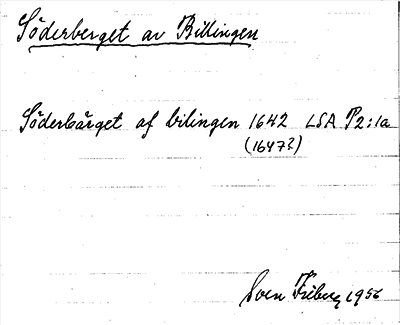 Söderberget av Billingen
Söderbärget af bilingen 1642 LSA P2:1a
(1647?)
Sven Friberg 1956